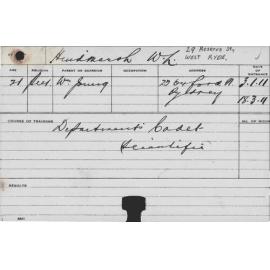 Hindmarsh W L. 29 Reserve St, WEST RYDE.
AGE RELIGION PARENT OR GUARDIAN OCCUPATION ADDRESS DATE OF ENTRANCE
21 Pres. Wm Young 22 Oxford St. 3.1.11
Sydney 18.3.11
COURSE OF TRAINING
Department Cadet
Scientific
RESULTS